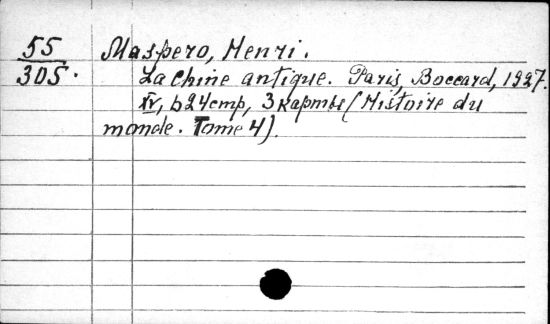 55
305.
Maspero, Henri.
La Chine antique. Paris, Boccard, 1927.
XV, 624 стр, 3 карты (Histoire du
monde. Tome 4).